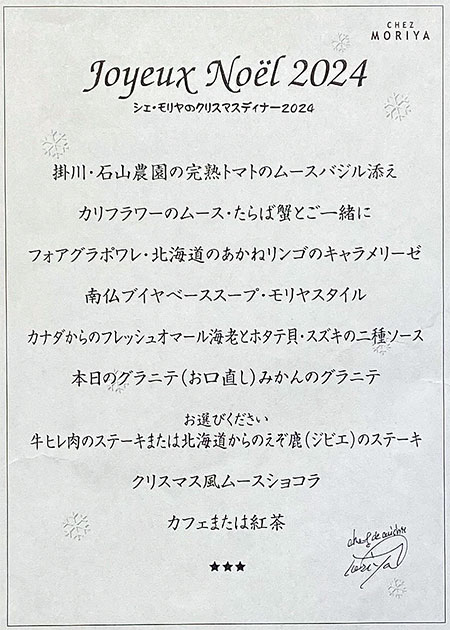 CHEZ
MORIYA
Joyeux Noël 2024
シェ・モリヤのクリスマスディナー2024
掛川・石山農園の完熟トマトのムースバジル添え
カリフラワーのムース・たらば蟹とご一緒に
フォアグラポワレ・北海道のあかねリンゴのキャラメリーゼ
南仏ブイヤベーススープ・モリヤスタイル
カナダからのフレッシュオマール海老とホタテ貝・スズキの二種ソース
本日のグラニテ(お口直し)みかんのグラニテ
お選びください
牛ヒレ肉のステーキまたは北海道からのえぞ鹿(ジビエ)のステーキ
クリスマス風ムースショコラ
カフェまたは紅茶
★★★